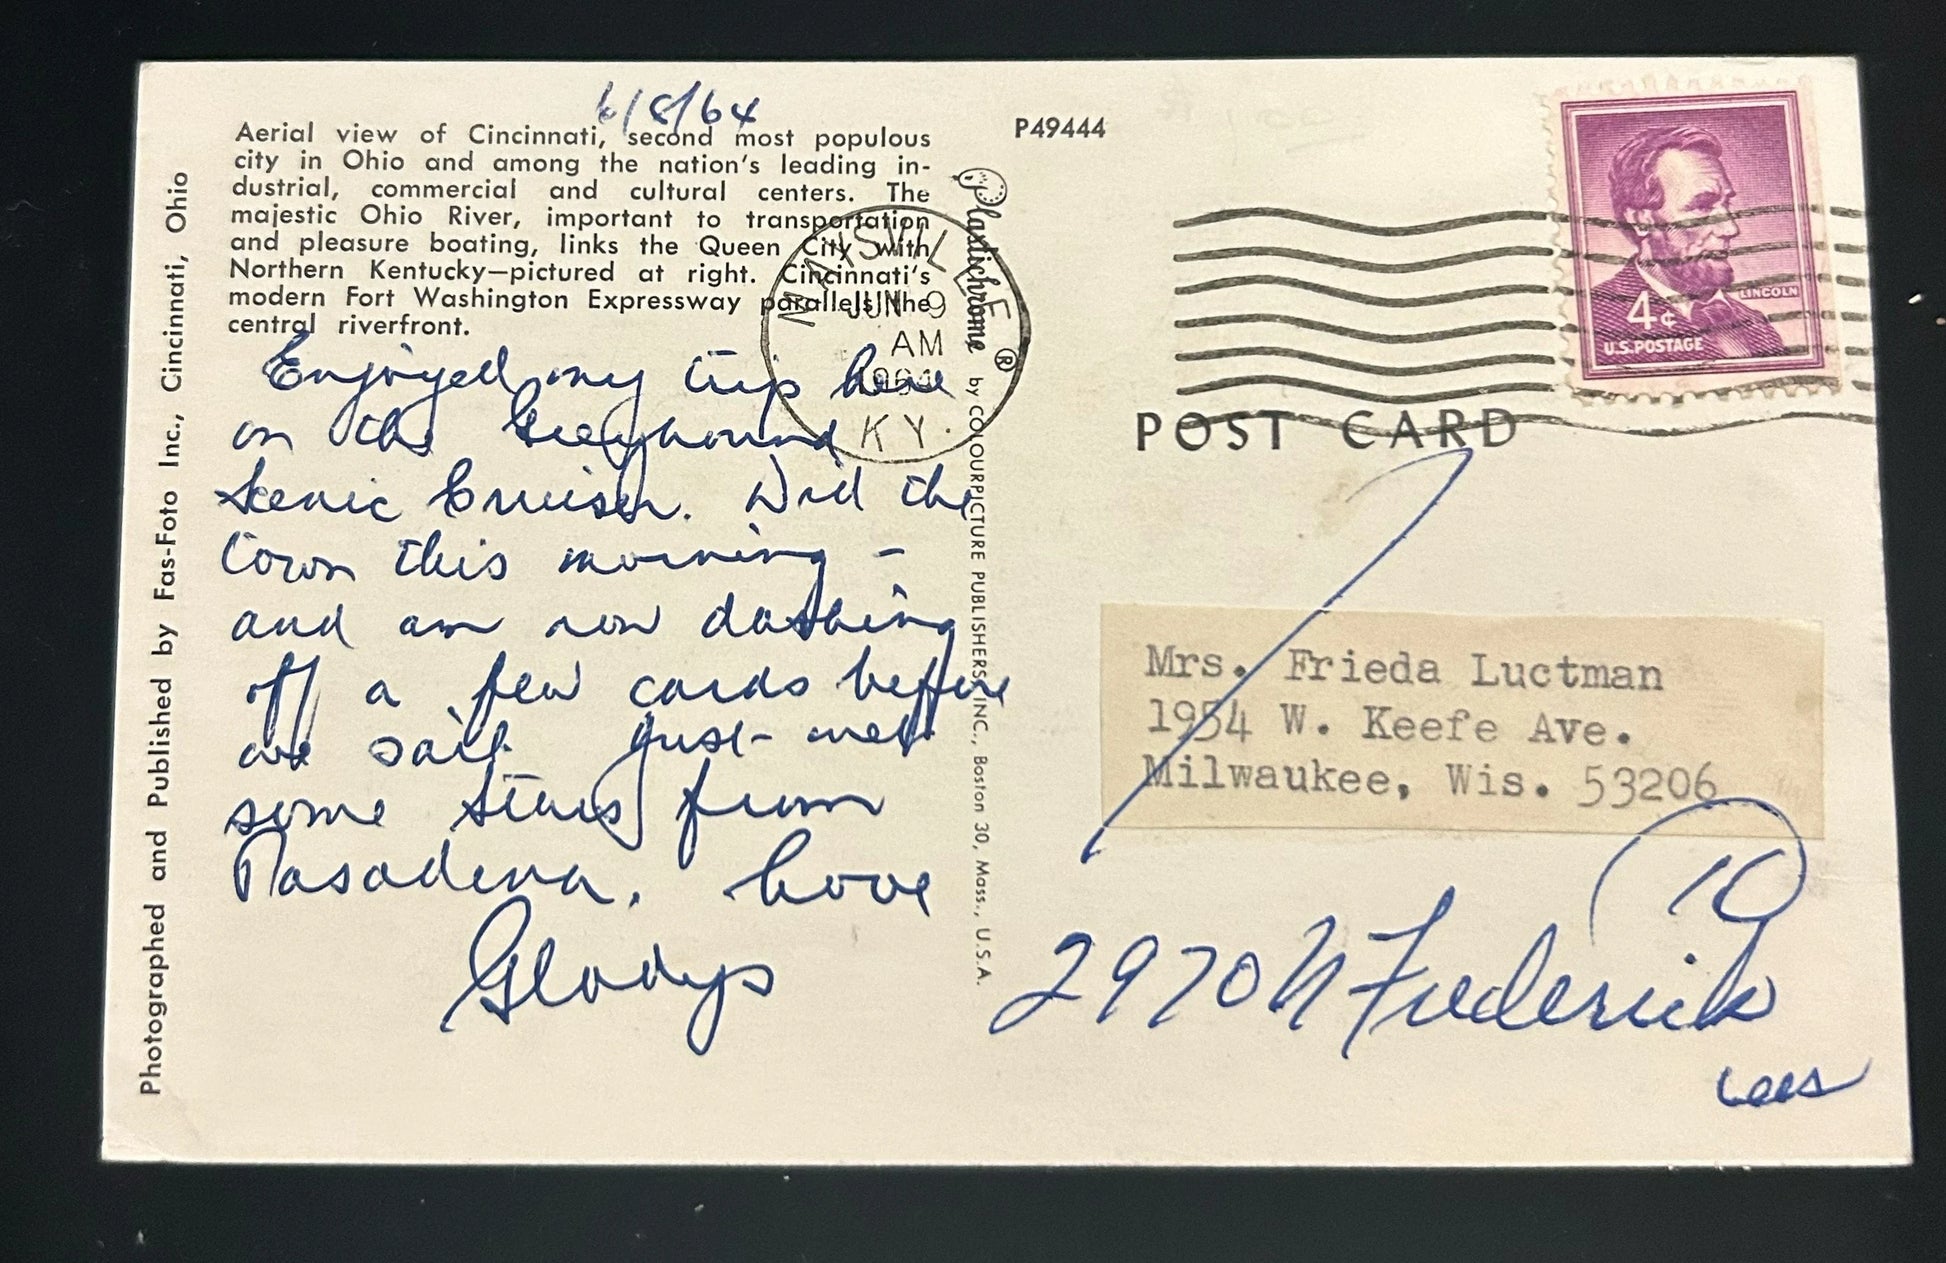 6/8/64
Aerial view of Cincinnati, second most populous
city in Ohio and among the nation's leading in-
dustrial, commercial and cultural centers. The
majestic Ohio River, important to transportation
and pleasure boating, links the Queen City with
Northern Kentucky—pictured at right. Cincinnati's
modern Fort Washington Expressway parallels the
central riverfront.
Enjoyed my trip here
on the Greyhound
Scenic Cruiser. Did the
town this morning -
and am now dashing
off a few cards before
we sail. Just met
some from
Pasadena. Love
Gladys
Photographed and Published by Fas-Foto Inc., Cincinnati, Ohio
MAYSVILLE
JUN 9
AM
1964
KY.
Plastichrome ® by COLOURPICTURE PUBLISHERS, INC., Boston 30, Mass., U.S.A.
P49444
LINCOLN
4¢
U.S. POSTAGE
POST CARD
Mrs. Frieda Luctman
1954 W. Keefe Ave.
Milwaukee, Wis. 53206
10
2970 N Frederick